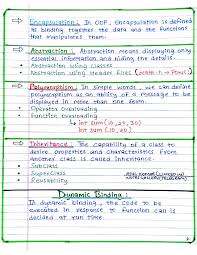 Encapsulation : In OOP, Encapsulation is defined
as binding together the data and the functions
that manipulates them.
Abstraction : Abstraction means displaying only
essential information and hiding the details.
• Abstraction using classes
• Abstraction using Header files (math.h → pow())
Polymorphism : In simple words, we can define
polymorphism as an ability of a message to be
displayed in more than one form.
• Operator Overloading
• Function overloading
int sum(10,20,30)
int sum(10,20)
Inheritance : The capability of a class to
derive properties and characteristics from
another class is called Inheritance.
• Subclass
• Superclass
• Reusability
Dynamic Binding :
In dynamic binding, the code to be
executed in response to function call is
decided at run time.